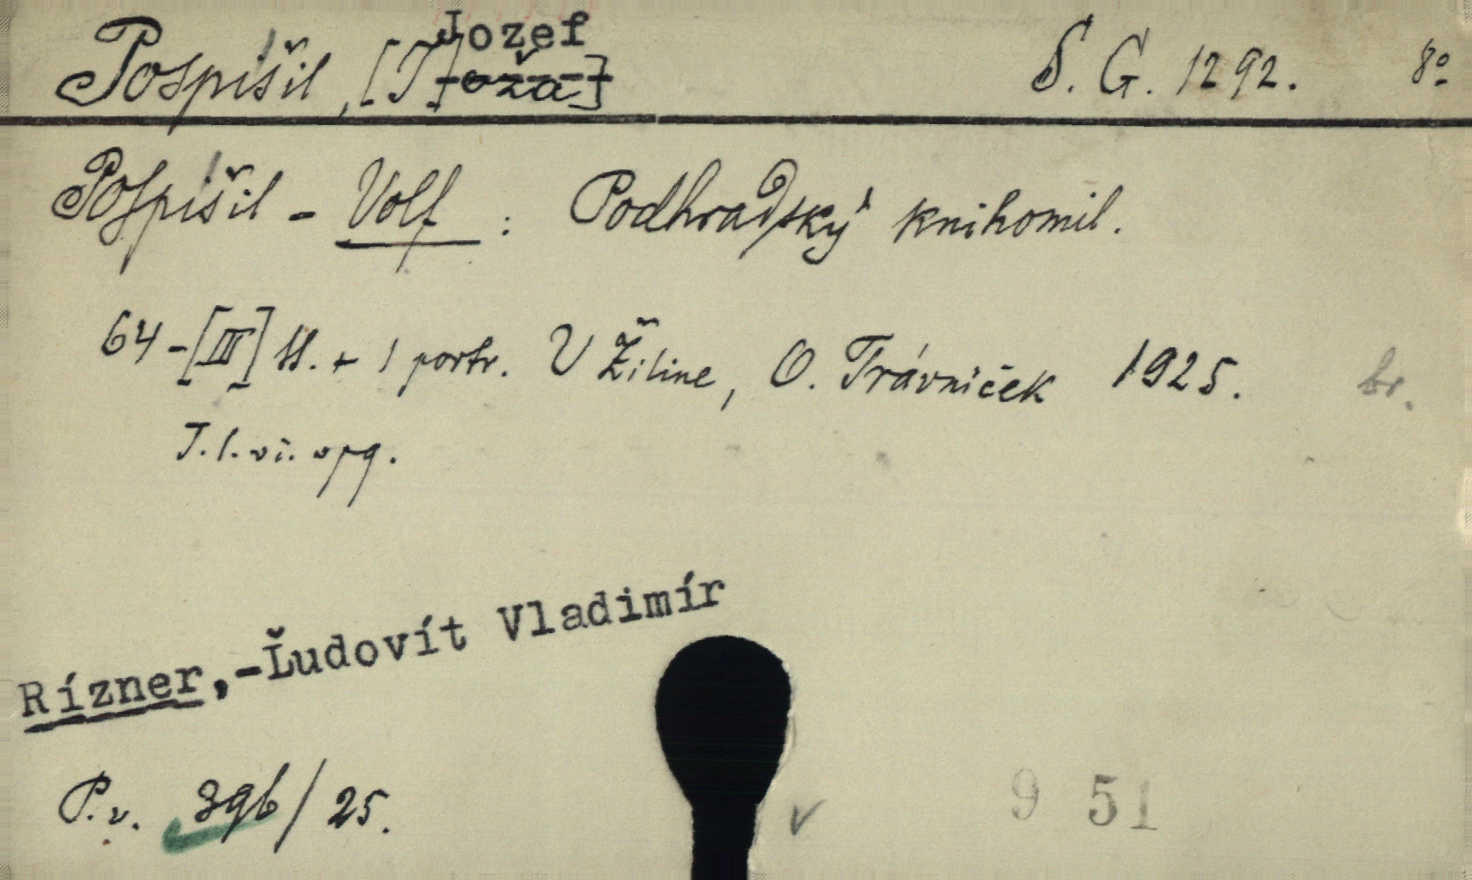 Pospíšil, [J] Jozef oža] S. G. 1292. 8°
Pospíšil - Volf : Podhradský knihomil.
64-[III] ss. + 1 portr. V Žiline, O. Trávniček 1925. br.
T. l. vi. vpg.
Rízner,-Ľudovít Vladimír
P.v. 396/25.
9 51